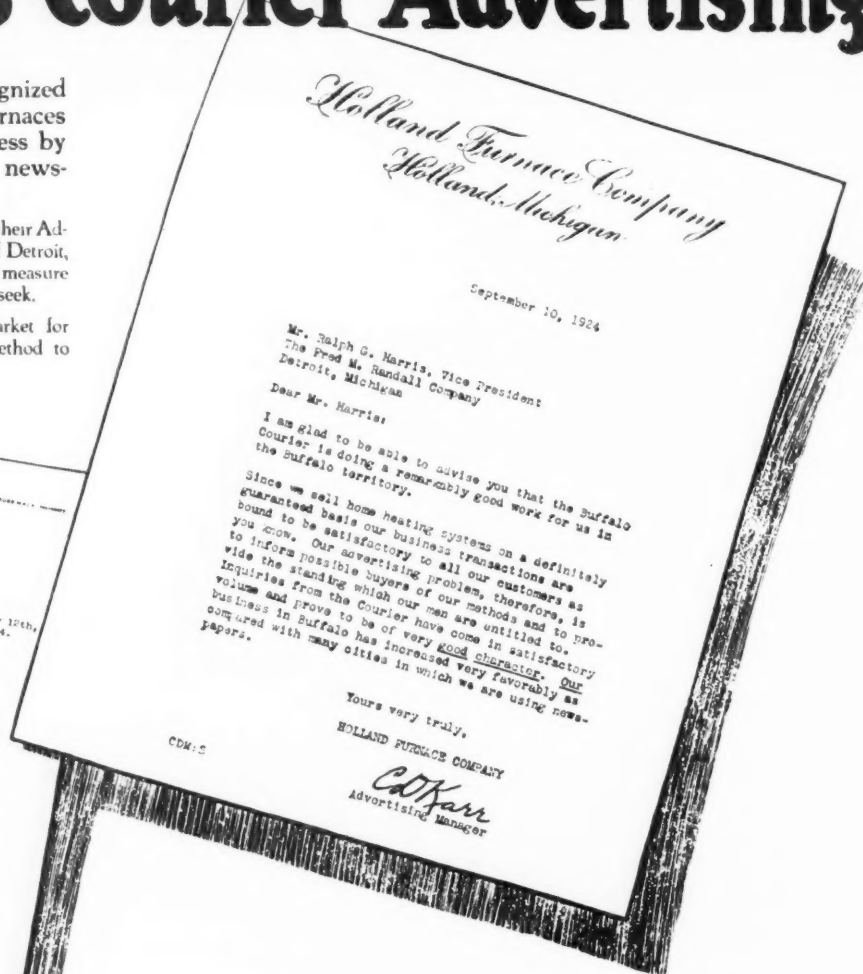 Courier Advertising
gnized
rnaces
ess by
news-
heir Ad-
Detroit,
measure
seek.
arket for
ethod to
12th,
4.
Holland Furnace Company
Holland, Michigan
September 10, 1924
Mr. Ralph G. Harris, Vice President
The Fred M. Randall Company
Detroit, Michigan
Dear Mr. Harris:
I am glad to be able to advise you that the Buffalo
Courier is doing a remarkably good work for us in
the Buffalo territory.
Since we sell home heating systems on a definitely
guaranteed basis our business transactions are
bound to be satisfactory to all our customers as
you know. Our advertising problem, therefore, is
to inform possible buyers of our methods and to pro-
vide the standing which our men are untitled to.
Inquiries from the Courier have come in satisfactory
volume and prove to be of very good character. Our
business in Buffalo has increased very favorably as
compared with many cities in which we are using news-
papers.
Yours very truly,
HOLLAND FURNACE COMPANY
CDKarr
Advertising Manager
CDK:S